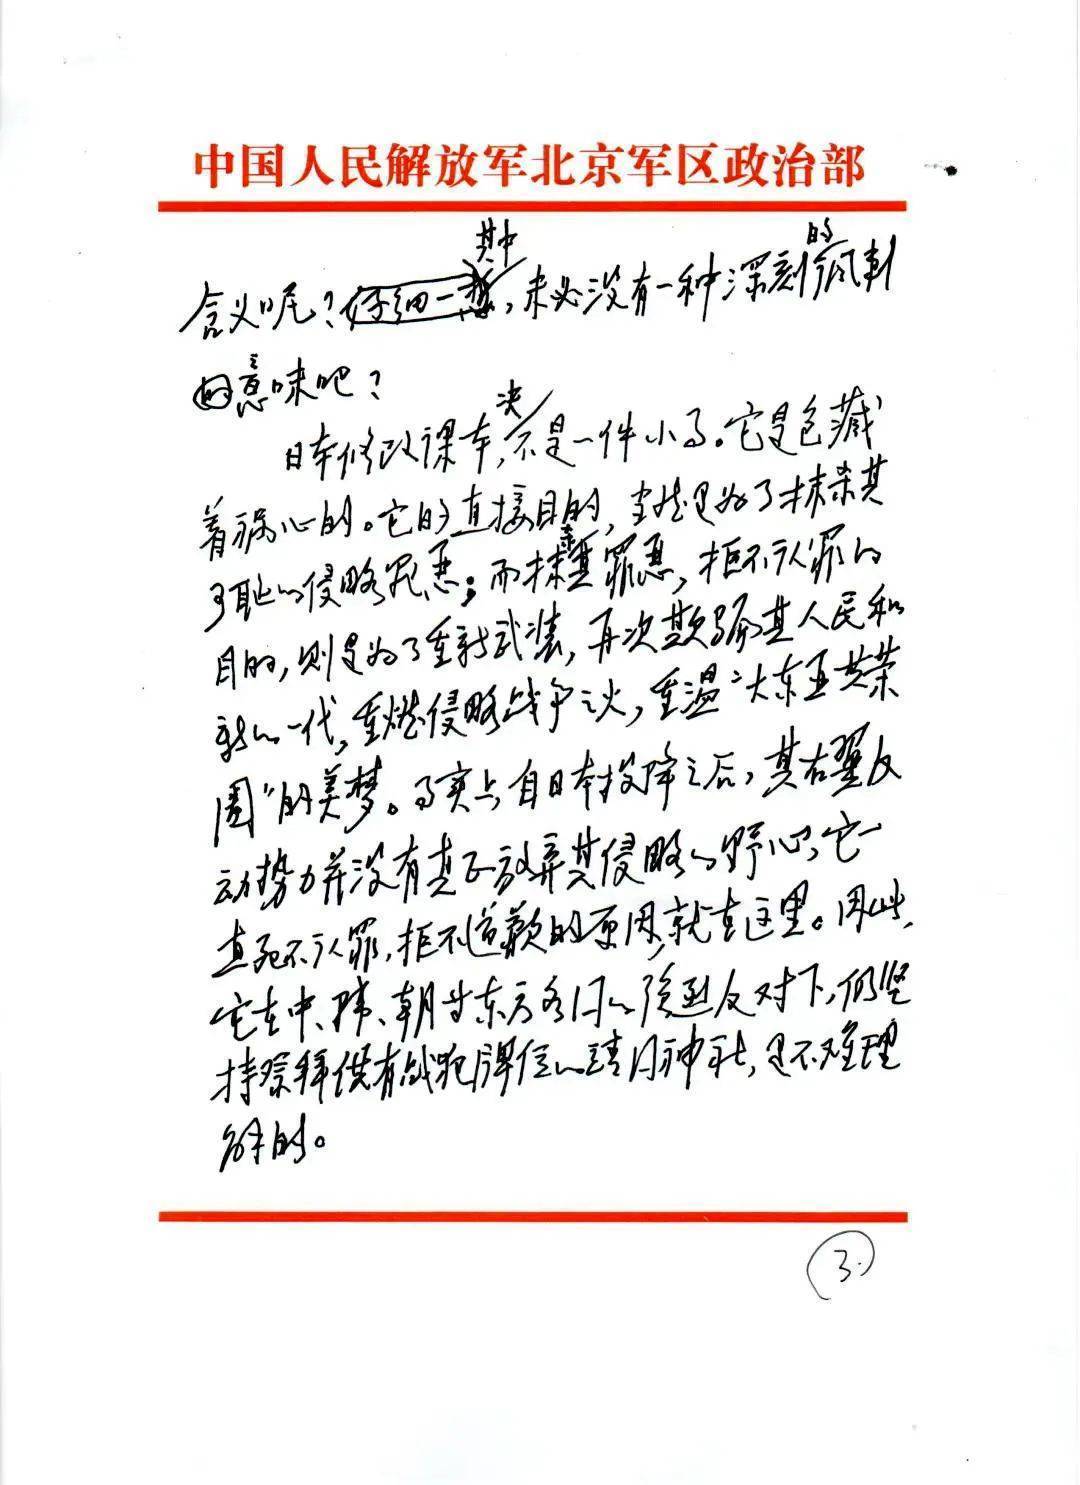 中国人民解放军北京军区政治部
其中 的
含义呢?好细一想,未必没有一种深刻讽刺
的意味吧?
决
日本修改课本,不是一件小事。它是包藏
着祸心的。它的直接目的,当然是为了抹杀其
可耻的侵略罪恶;而抹杀罪恶,拒不认罪的
目的,则是为了重新武装,再次欺骗其人民和
新的一代,重燃侵略战争之火,重温“大东亚共荣
圈”的美梦。事实上自日本投降之后,其右翼反
动势力并没有真正放弃其侵略的野心,它一
直死不认罪,拒不道歉的原因,就在这里。因此,
它在中、韩、朝等东方各国的强烈反对下,仍坚
持祭拜供有战犯牌位的靖国神社,是不难理
解的。
3.